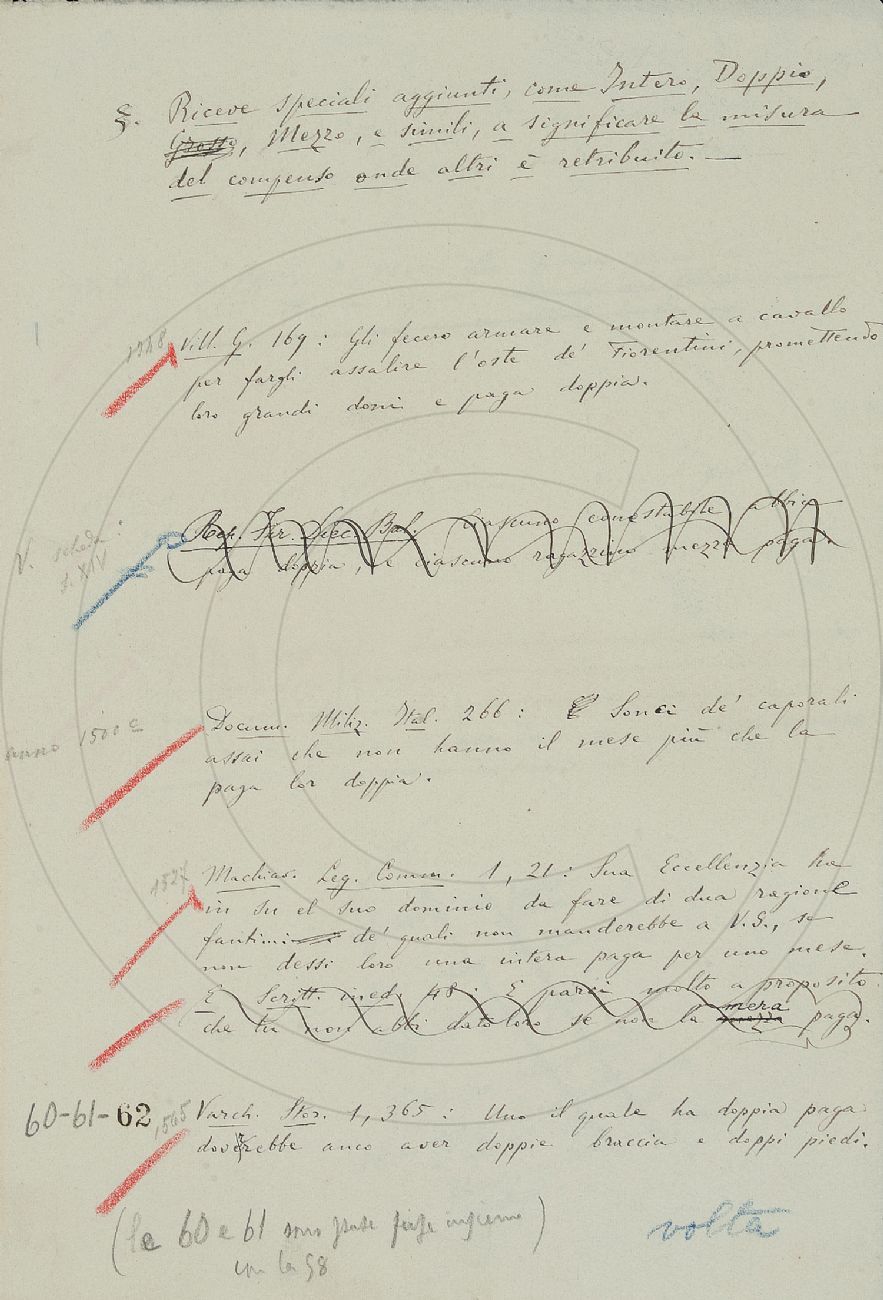 §. Riceve speciali aggiunti, come Intero, Doppio,
Grosso, Mezzo, e simili, a significare la misura
del compenso onde altri è retribuito. —
1348
Vill. G. 169: Gli fecero armare e montare a cavallo
per fargli assalire l'oste de' Fiorentini, promettendo
loro grandi doni e paga doppia.
V. scheda
s. XIV
Rep. Fir. Diec. Bal. Ciascuno conestabile abbia
paga doppia, e ciascuno ragazzino mezza paga.
anno 1500 c
Docum. Miliz. Ital. 266: Sonci de' caporali
assai che non hanno il mese più che la
paga lor doppia.
1527
Machiav. Leg. Comm. 1, 21: Sua Eccellenzia ha
in su el suo dominio da fare di dua ragione
fantini de' quali non manderebbe a V. S., se
non dessi loro una intera paga per uno mese.
E Scritt. ined. 48: E parci molto a proposito
mera
che tu non abbi dato loro se non la mezza paga.
60-61-62
1565
Varch. Stor. 1, 365: Uno il quale ha doppia paga
doverebbe anco aver doppie braccia e doppi piedi.
(le 60 e 61 sono state insieme)
con la 58
volta